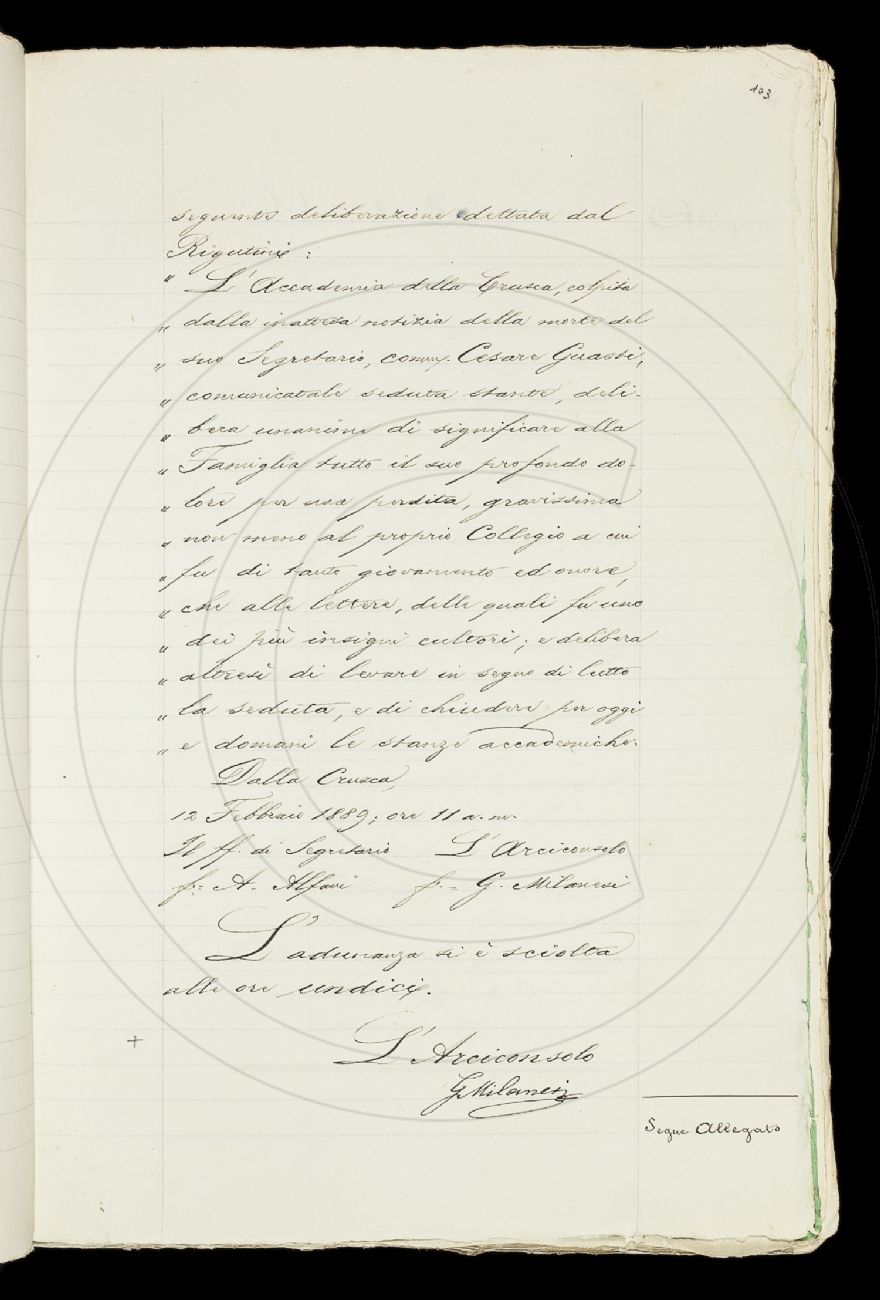 103
seguente deliberazione dettata dal
Rigutini:
" L'Accademia della Crusca, colpita
" dalla inattesa notizia della morte del
" suo Segretario, comm. Cesare Guasti,
" comunicatale seduta stante, deli-
" bera unanime di significare alla
" Famiglia tutto il suo profondo do-
" lore per una perdita, gravissima
" non meno al proprio Collegio a cui
" fu di tanto giovamento ed onore,
" che alle lettere, delle quali fu uno
" dei più insigni cultori; e delibera
" altresì di levare in segno di lutto
" la seduta, e di chiudere per oggi
" e domani le stanze accademiche.
Dalla Crusca,
12 Febbraio 1889; ore 11 a. m.
Il ff. di Segretario L'Arciconsolo
f.= A. Alfani f.= G. Milanesi
L'adunanza si è sciolta
alle ore undici.
L'Arciconsolo
GMilanesi
Segue Allegato